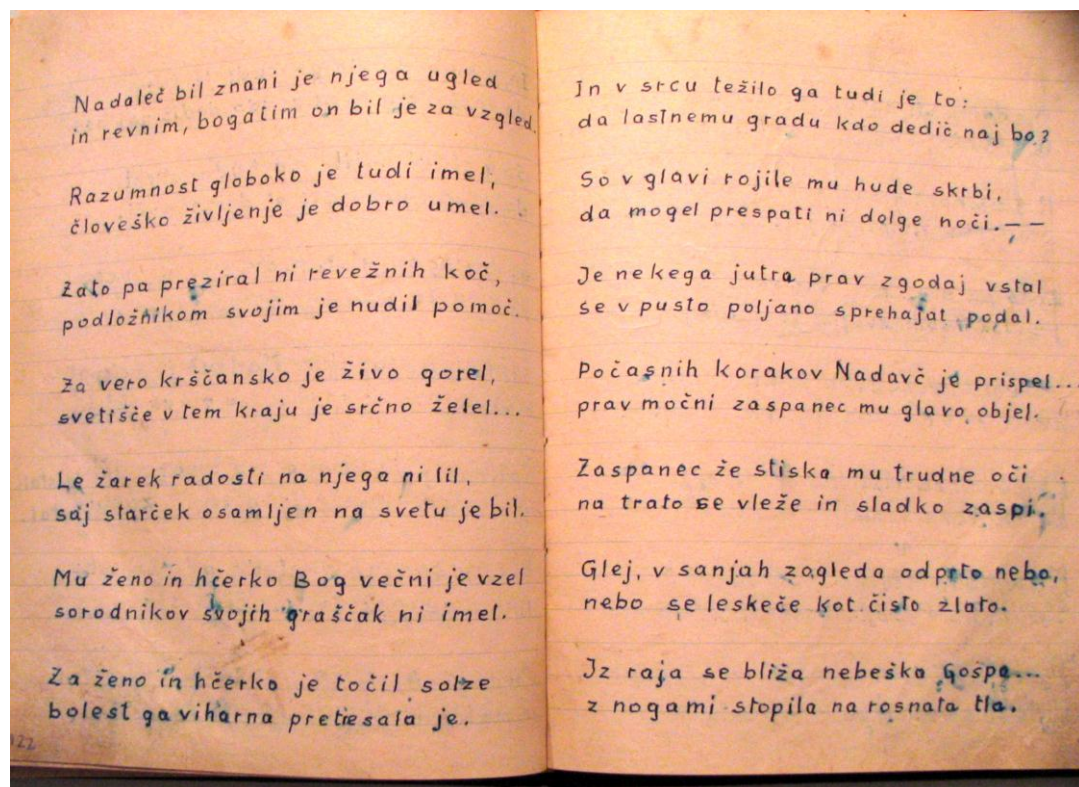 Nadaleč bil znani je njega ugled
in revnim, bogatim on bil je za vzgled.
Razumnost globoko je tudi imel,
človeško življenje je dobro umel.
Zato pa preziral ni revežnih koč,
podložnikom svojim je nudil pomoč.
Za vero krščansko je živo gorel,
svetišče v tem kraju je srčno želel...
Le žarek radosti na njega ni lil,
saj starček osamljen na svetu je bil.
Mu ženo in hčerko Bog večni je vzel
sorodnikov svojih graščak ni imel.
Za ženo in hčerko je točil solze
bolest ga viharna pretresala je.
22
In v srcu težilo ga tudi je to:
da lastnemu gradu kdo dedič naj bo?
So v glavi rojile mu hude skrbi,
da mogel prespati ni dolge noči.--
Je nekega jutra prav zgodaj vstal
se v pusto poljano sprehajat podal.
Počasnih korakov Nadavč je prispel...
prav močni zaspanec mu glavo objel.
Zaspanec že stiska mu trudne oči
na trato se vleže in sladko zaspi.
Glej, v sanjah zagleda odprto nebo,
nebo se leskeče kot čisto zlato.
Iz raja se bliža nebeška Gospa...
z nogami stopila na rosnata tla.